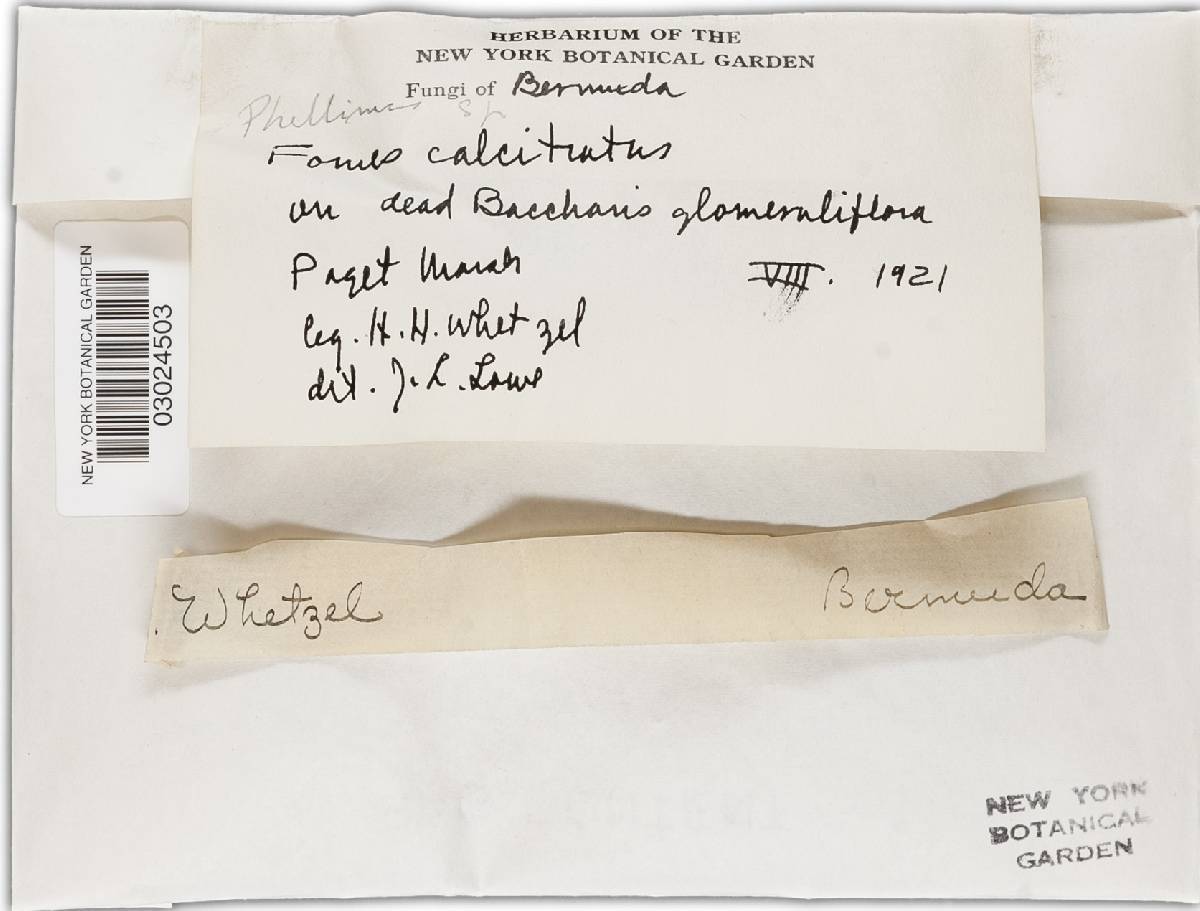 HERBARIUM OF THE
NEW YORK BOTANICAL GARDEN
Fungi of Bermuda
Phellinus sp
Fomes calcitratus
on dead Baccharis glomeruliflora
Paget Marsh VIII. 1921
leg. H. H. Whetzel
det. J. L. Lowe
NEW YORK BOTANICAL GARDEN
03024503
Whetzel Bermuda
NEW YORK
BOTANICAL
GARDEN